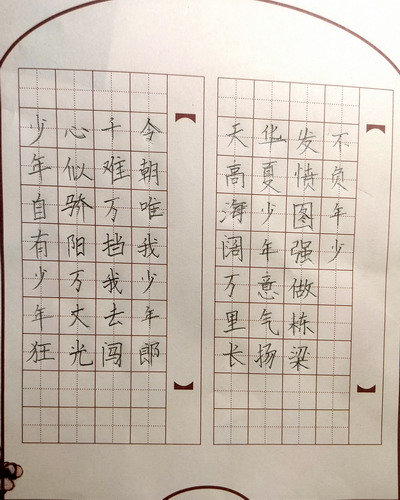 少年自有少年狂
心似骄阳万丈光
千难万挡我去闯
今朝唯我少年郎
天高海阔万里长
华夏少年意气扬
发愤图强做栋梁
不负年少